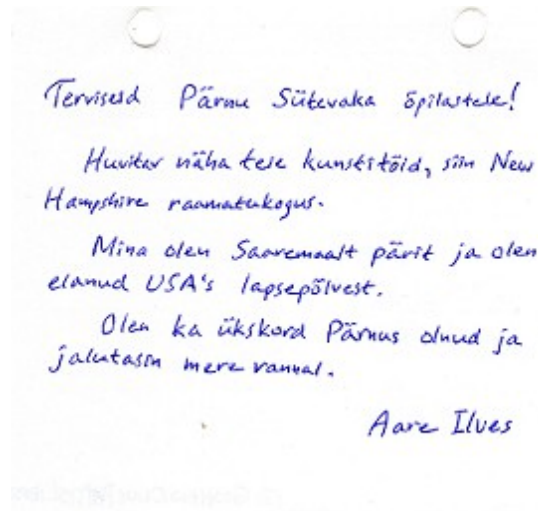 Terviseid Pärnu Sütevaka õpilastele!
Huvitav näha teie kunstitöid, siin New
Hampshire raamatukogus.
Mina olen Saaremaalt pärit ja olen
elanud USA's lapsepõlvest.
Olen ka ükskord Pärnus olnud ja
jalutasin mere rannal.
Aare Ilves